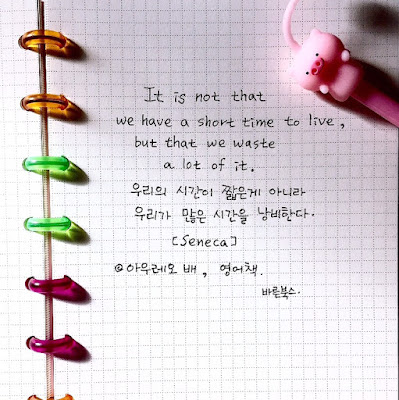 It is not that
we have a short time to live,
but that we waste
a lot of it.
우리의 시간이 짧은게 아니라
우리가 많은 시간을 낭비한다.
[Seneca]
@아우레오 배, 영어책.
바른북스.